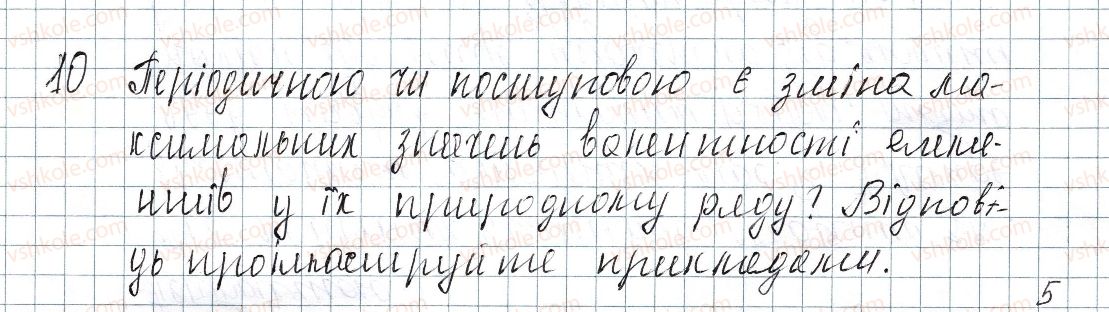 10 Періодичною чи поступовою є зміна ма-
ксимальних значень валентності елеме-
нтів у їх природному ряду? Відпові-
дь проілюструйте прикладами.
5